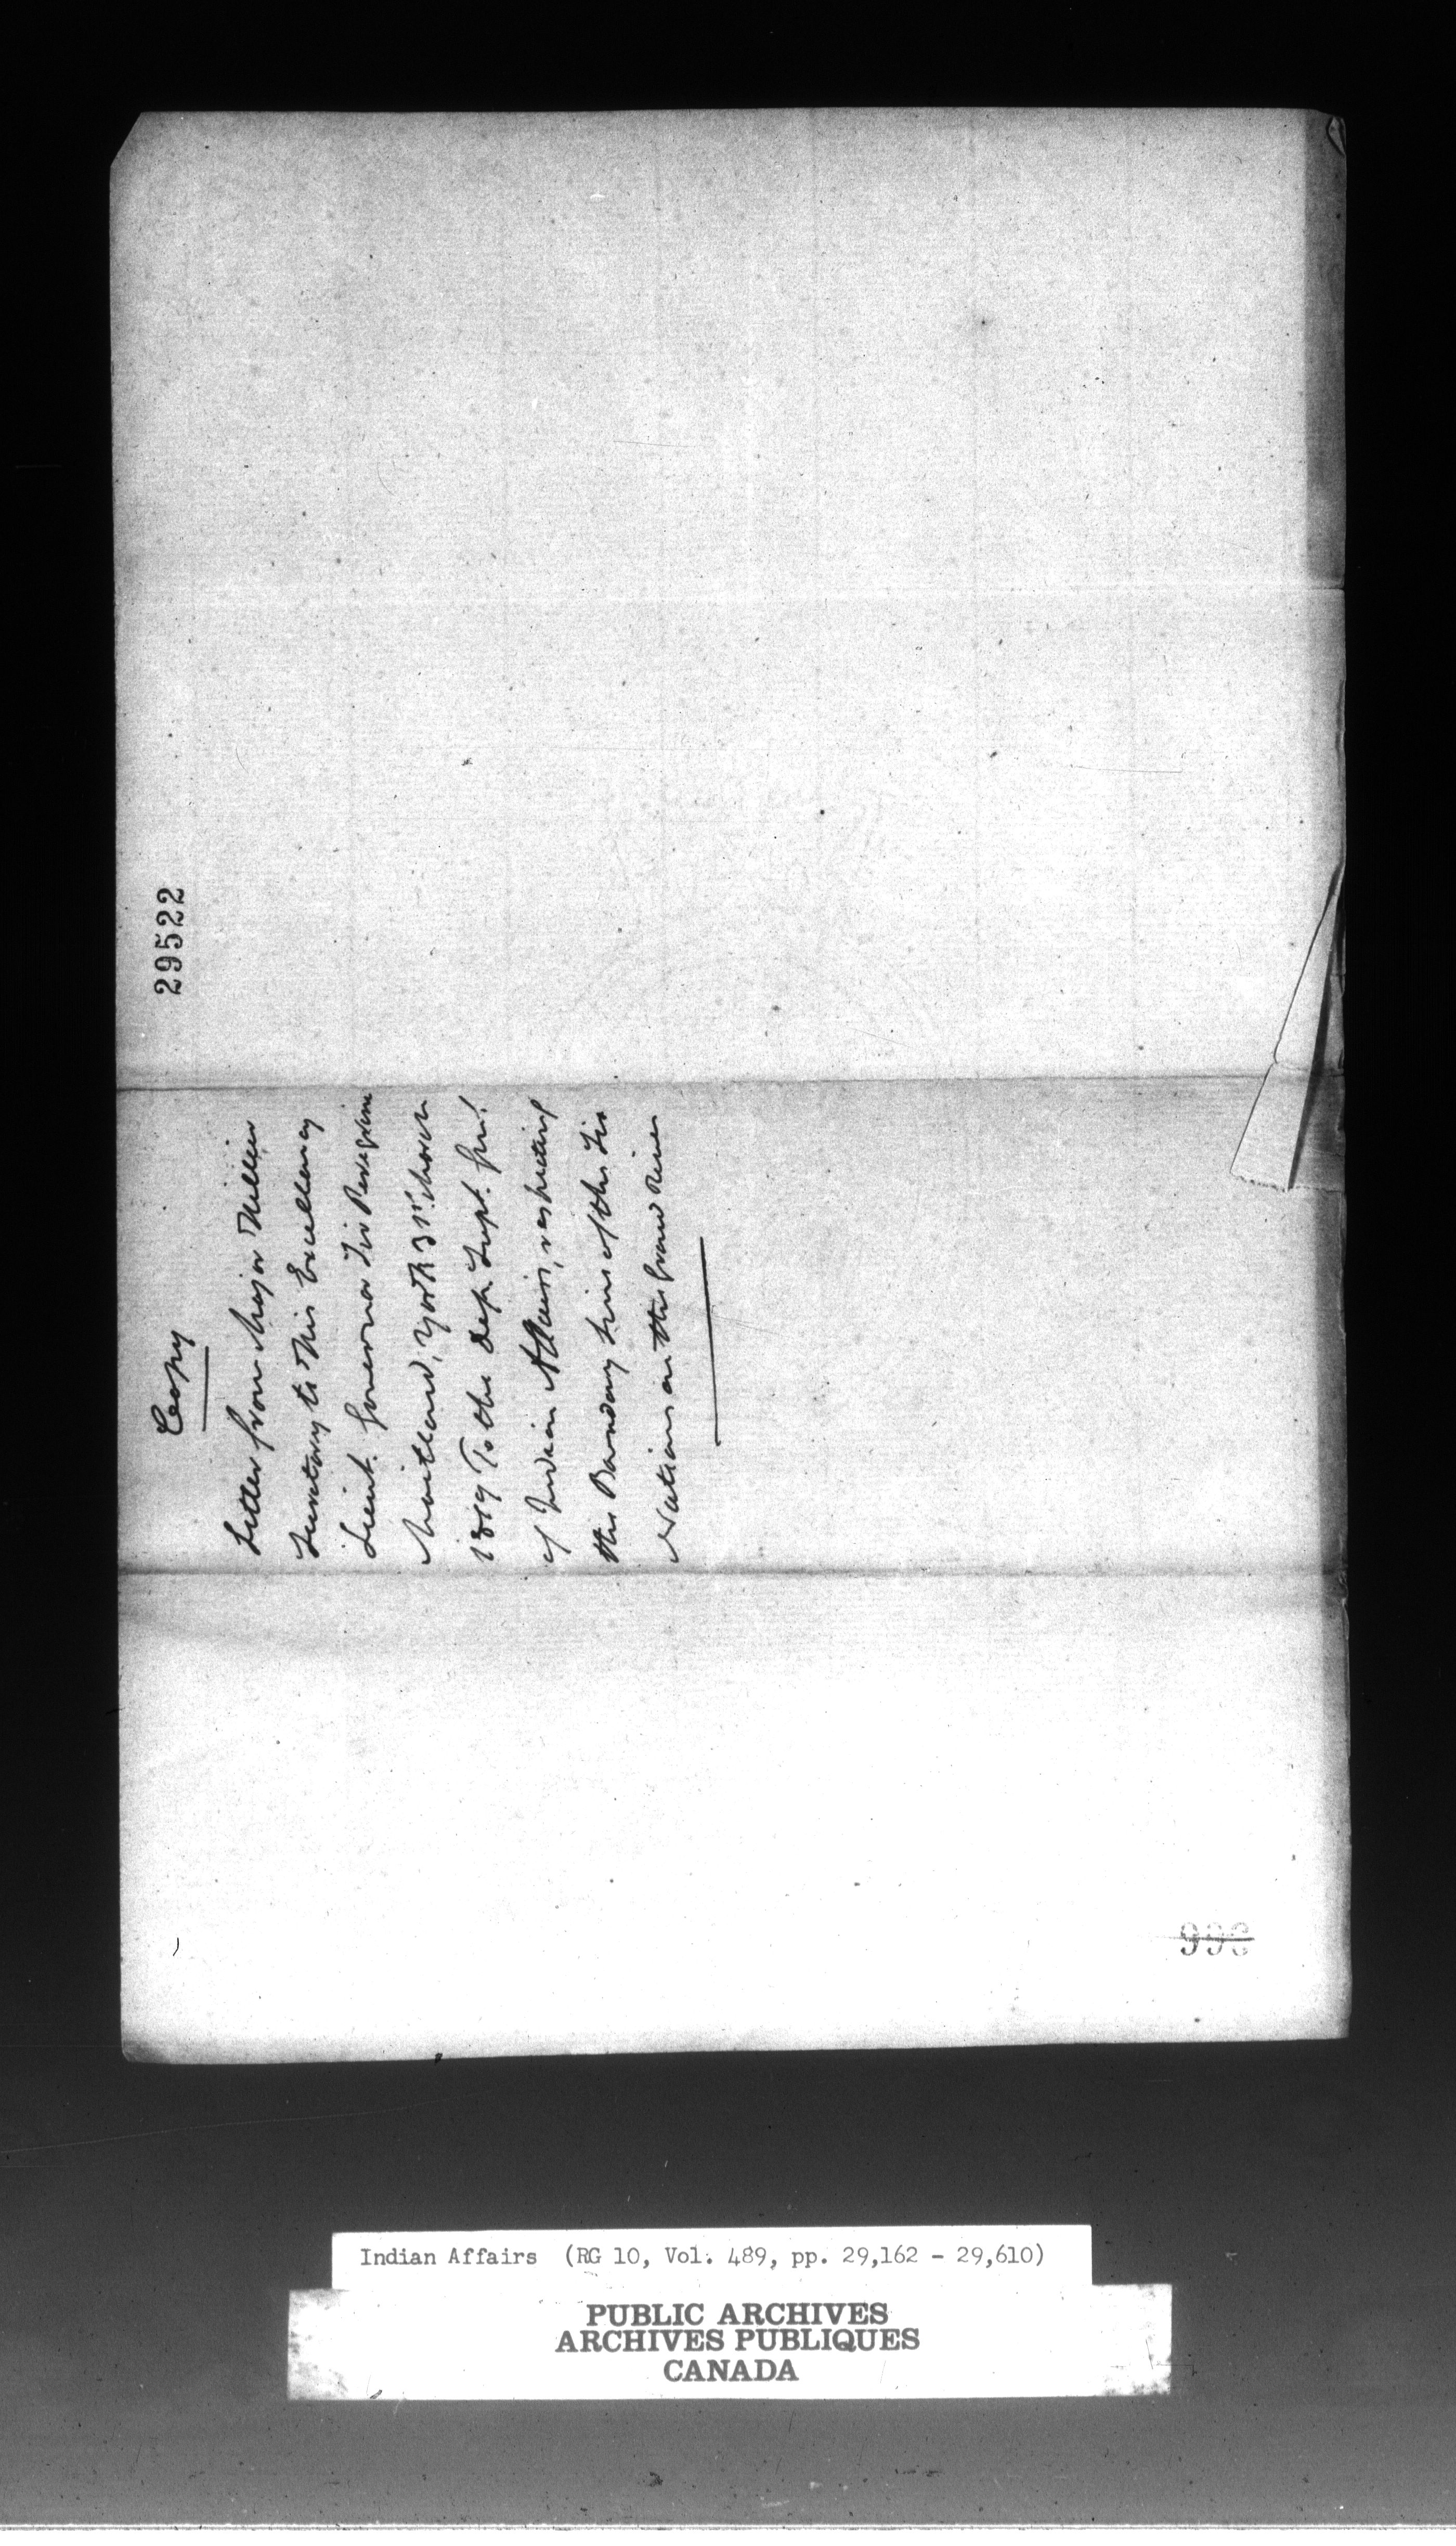 29522
Copy
Letter from Major Hillier
Secretary to His Excellency
Lieut. Governor Sir Peregrine
Maitland, York 31st. March
1819 To the Dep. Supt. Genl.
of Indian Affairs, respecting
the Boundary Line of the Six
Nations on the Grand River
Indian Affairs (RG 10, Vol. 489, pp. 29,162 - 29,610)
PUBLIC ARCHIVES
ARCHIVES PUBLIQUES
CANADA